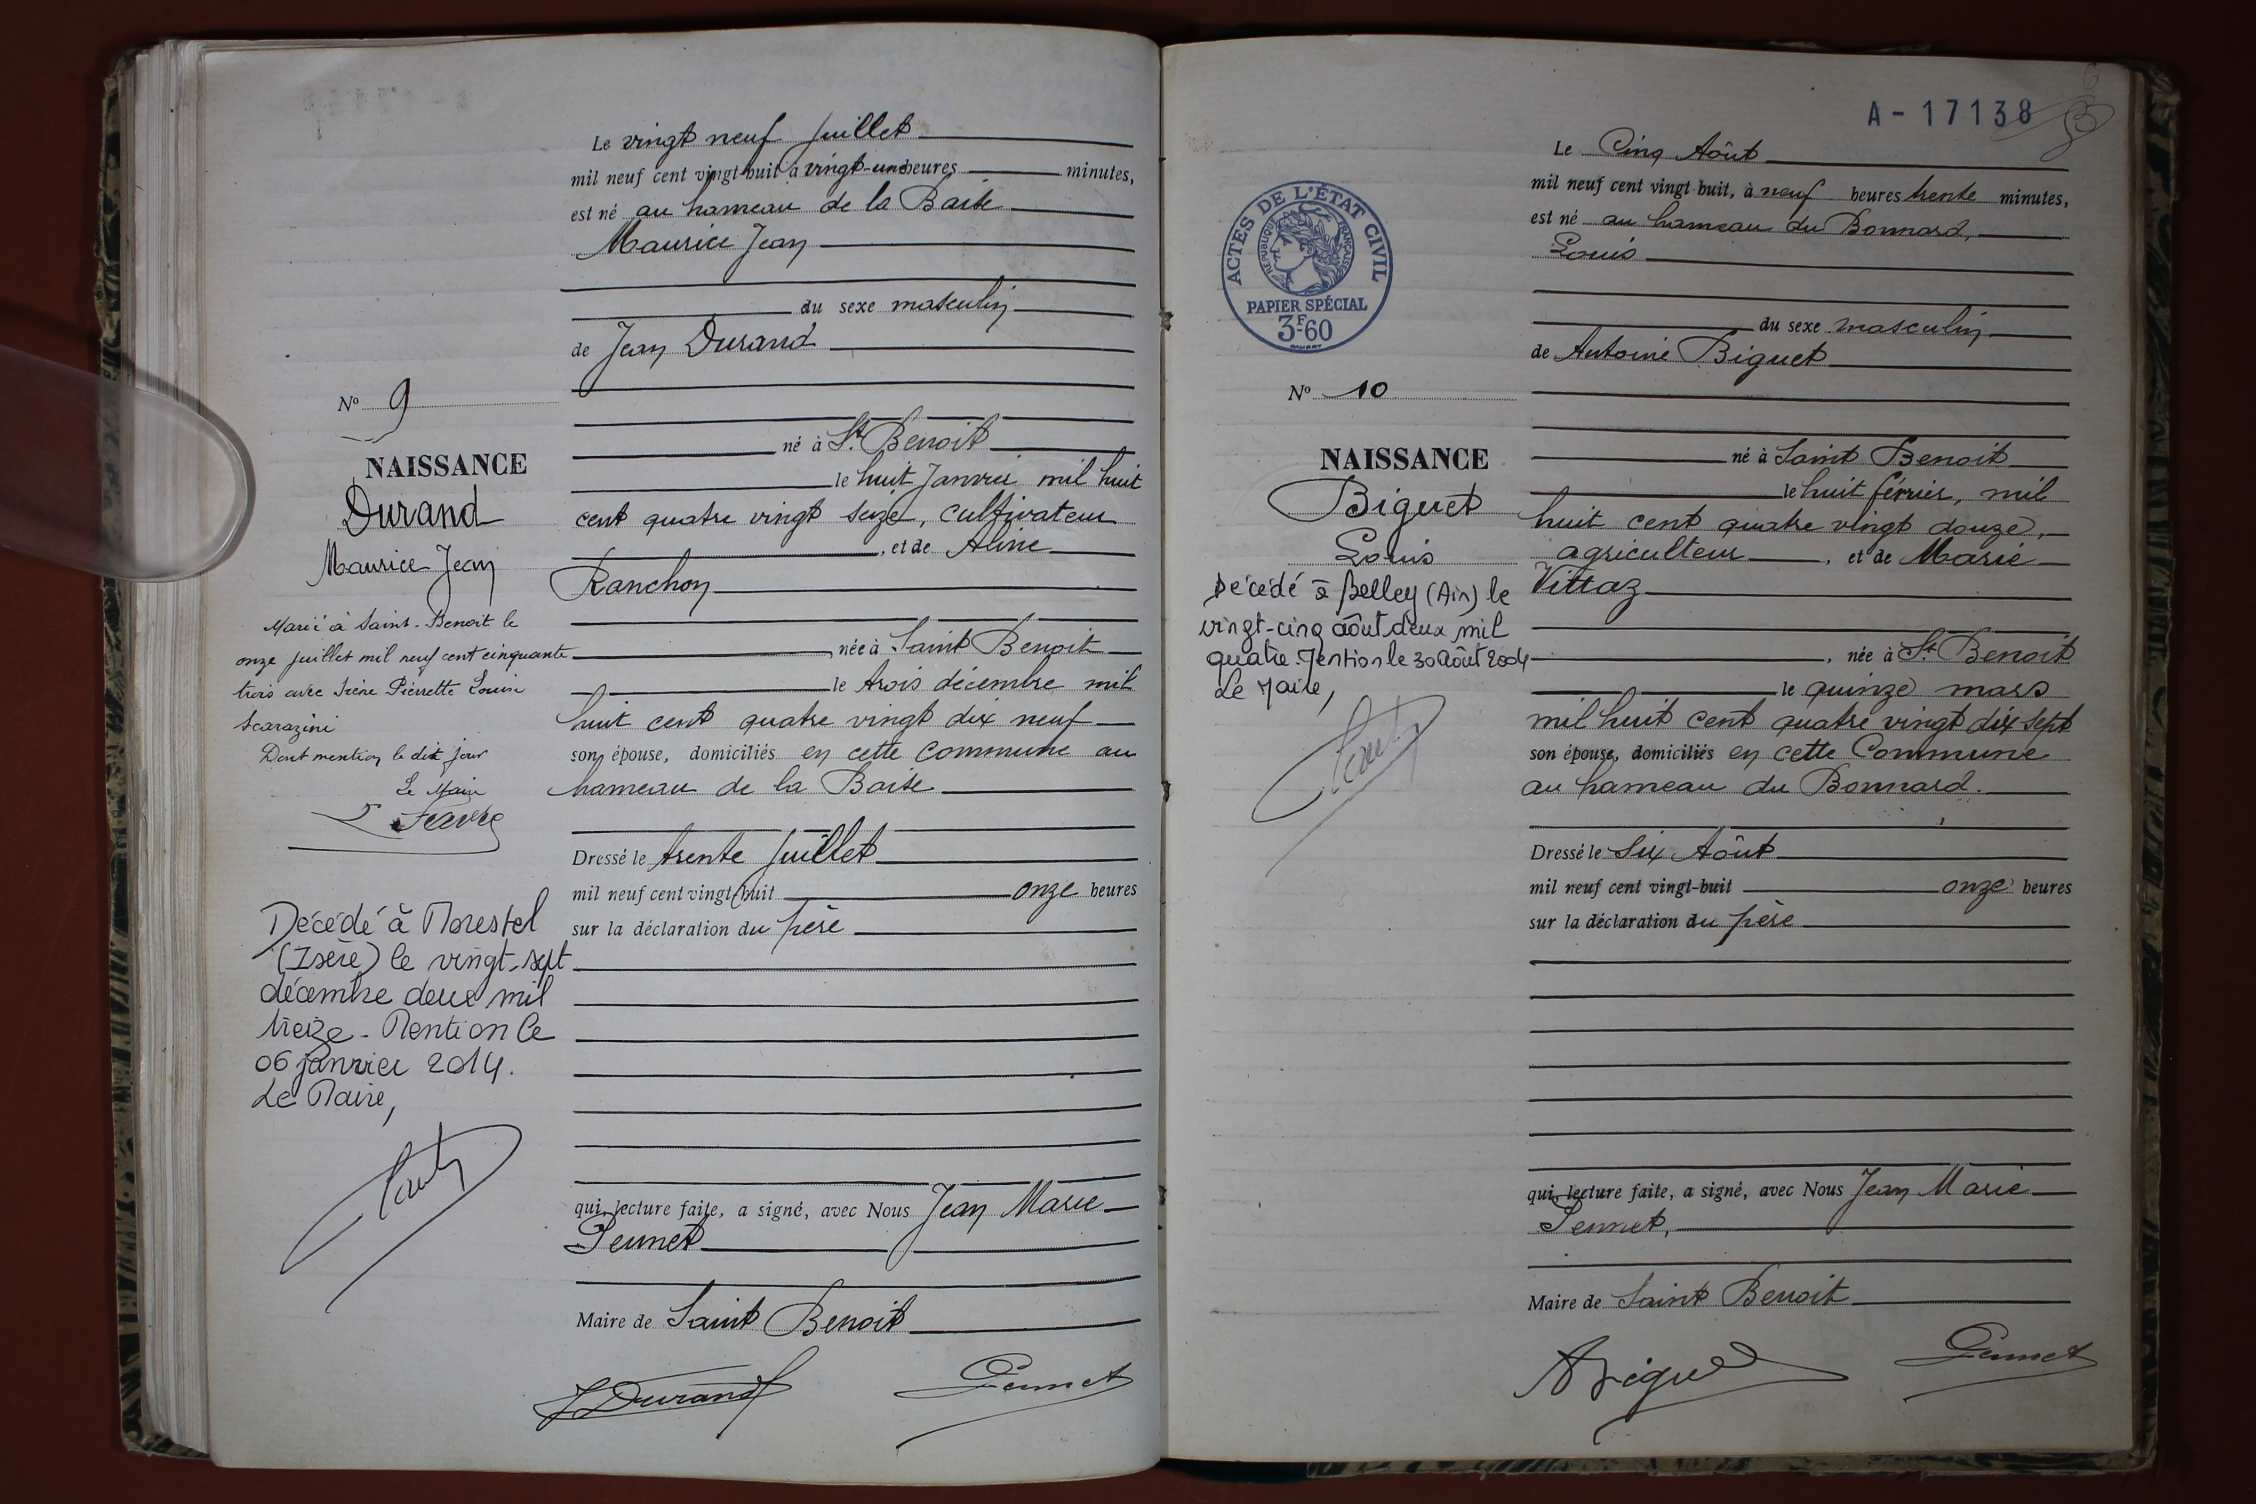 Le vingt neuf juillet
mil neuf cent vingt-huit à vingt-une heures minutes,
est né au hameau de la Baite
Maurice Jean
du sexe masculin
de Jean Durand
né à St Benoit
le huit Janvier mil huit
cent quatre vingt seize, cultivateur
, et de Aline
Ranchon
née à Saint Benoit
le trois décembre mil
huit cent quatre vingt dix neuf
son épouse, domiciliés en cette commune au
hameau de la Baite
Dressé le trente juillet
mil neuf cent vingt-huit onze heures
sur la déclaration du père
qui, lecture faite, a signé, avec Nous Jean Marie
Pennet
Maire de Saint Benoit
J Durand
Pennet
No 9
NAISSANCE
Durand
Maurice Jean
Marié à Saint-Benoit le
onze juillet mil neuf cent cinquante
trois avec Irène Pierrette Louise
Scarazini
Dont mention le dit jour
Le Maire
Décédé à Morestel
(Isère) le vingt-sept
décembre deux mil
treize - Mention le
06 janvier 2014.
Le Maire,
A-17138
Le Cinq Aôut
mil neuf cent vingt-huit, à neuf heures trente minutes,
est né au hameau du Bonnard,
Louis
du sexe masculin
de Antoine Biguet
né à Saint Benoit
le huit février, mil
huit cent quatre vingt douze,
agriculteur , et de Marie
Vittaz
, née à St Benoit
le quinze mars
mil huit cent quatre vingt dix sept
son épouse, domiciliés en cette Commune
au hameau du Bonnard.
Dressé le Six Aôut
mil neuf cent vingt-huit onze heures
sur la déclaration du père
qui, lecture faite, a signé, avec Nous Jean Marie
Pennet,
Maire de Saint Benoit
A Biguet
Pennet
ACTES DE L'ÉTAT CIVIL
RÉPUBLIQUE FRANÇAISE
PAPIER SPÉCIAL
3F60
No 10
NAISSANCE
Biguet
Louis
Décédé à Belley (Ain) le
vingt-cinq aôut deux mil
quatre. Mention le 30 Aôut 2004
Le Maire,